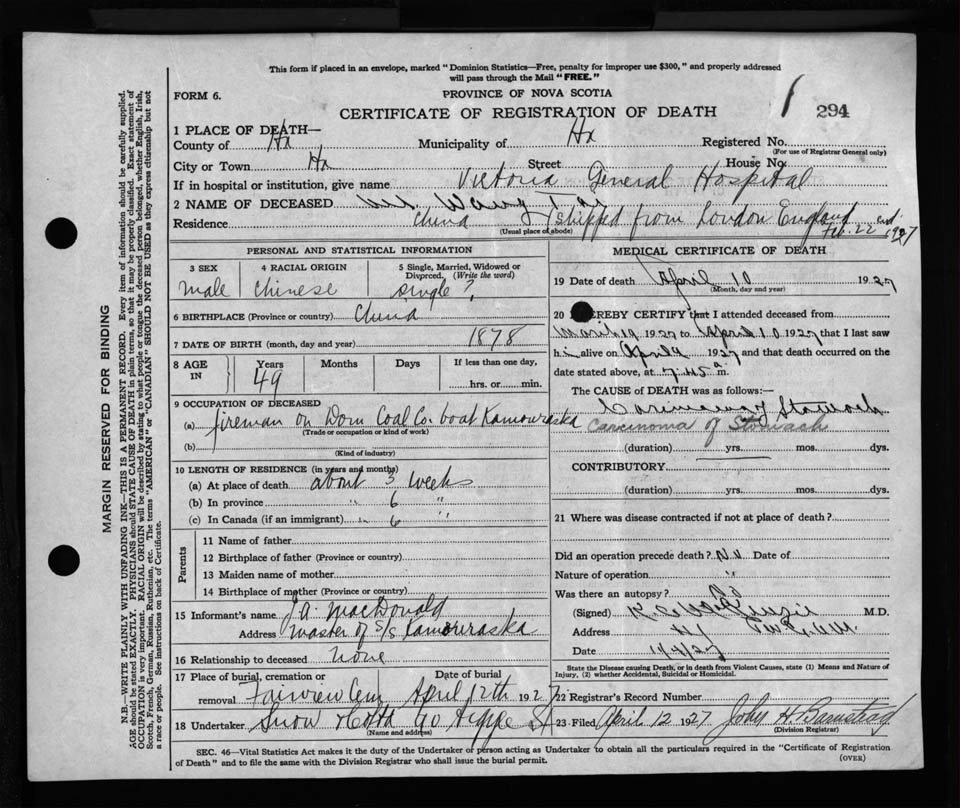 This form if placed in an envelope, marked "Dominion Statistics—Free, penalty for improper use $300," and properly addressed
will pass through the Mail "FREE."
FORM 6.
PROVINCE OF NOVA SCOTIA
CERTIFICATE OF REGISTRATION OF DEATH
1
294
1 PLACE OF DEATH—
County of Hx Municipality of Hx Registered No.
(For use of Registrar General only)
City or Town Hx Street House No.
If in hospital or institution, give name Victoria General Hospital
2 NAME OF DECEASED Wang
Residence China (shipped from London England Feb. 22 1927
(Usual place of abode)
PERSONAL AND STATISTICAL INFORMATION
3 SEX
male
4 RACIAL ORIGIN
Chinese
5 Single, Married, Widowed or Divorced. (Write the word)
single ?
6 BIRTHPLACE (Province or country) China
7 DATE OF BIRTH (month, day and year) 1878
8 AGE IN
Years
49
Months
Days
If less than one day,
hrs. or min.
9 OCCUPATION OF DECEASED
(a) fireman on Dom Coal Co. boat Kamouraska
(Trade or occupation or kind of work)
(b)
(Kind of industry)
10 LENGTH OF RESIDENCE (in years and months)
(a) At place of death about 3 weeks
(b) In province " 6 "
(c) In Canada (if an immigrant) " 6 "
Parents
11 Name of father
12 Birthplace of father (Province or country)
13 Maiden name of mother
14 Birthplace of mother (Province or country)
15 Informant's name J.A. MacDonald
Address Master of S/S Kamouraska
16 Relationship to deceased none
17 Place of burial, cremation or removal Fairview Cem
Date of burial
April 12th 1927
18 Undertaker Snow & Co Ltd 90 Argyle St
(Name and address)
MEDICAL CERTIFICATE OF DEATH
19 Date of death April 10 1927
(Month, day and year)
20 HEREBY CERTIFY that I attended deceased from
March 19 1927 to April 10 1927 that I last saw
him alive on April 9 1927 and that death occurred on the
date stated above, at 7.45 a m.
The CAUSE of DEATH was as follows:
Carcinoma Stomach
Carcinoma of Stomach
(duration) yrs. mos. dys.
CONTRIBUTORY
(duration) yrs. mos. dys.
21 Where was disease contracted if not at place of death?
Did an operation precede death? No Date of
Nature of operation "
Was there an autopsy? No
(Signed) M.D.
Address
Date 11/4/27
State the Disease causing Death, or in death from Violent Causes, state (1) Means and Nature of Injury, (2) whether Accidental, Suicidal or Homicidal.
22 Registrar's Record Number
23 Filed April 12 1927 John H Barnstead
(Division Registrar)
SEC. 46—Vital Statistics Act makes it the duty of the Undertaker or person acting as Undertaker to obtain all the particulars required in the "Certificate of Registration
of Death" and to file the same with the Division Registrar who shall issue the burial permit.
(OVER)
MARGIN RESERVED FOR BINDING
N.B.—WRITE PLAINLY WITH UNFADING INK—THIS IS A PERMANENT RECORD. Every item of information should be carefully supplied.
AGE should be stated EXACTLY. PHYSICIANS should STATE CAUSE OF DEATH in plain terms, so that it may be properly classified. Exact statement of
OCCUPATION is very important. RACIAL ORIGIN will be described by stating to what people or tongue the deceased person belonged, whether English, Irish,
Scotch, French, German, Russian, Ruthenian, etc. The terms "AMERICAN" or "CANADIAN" SHOULD NOT BE USED as they express citizenship but not
a race or people. See instructions on back of Certificate.